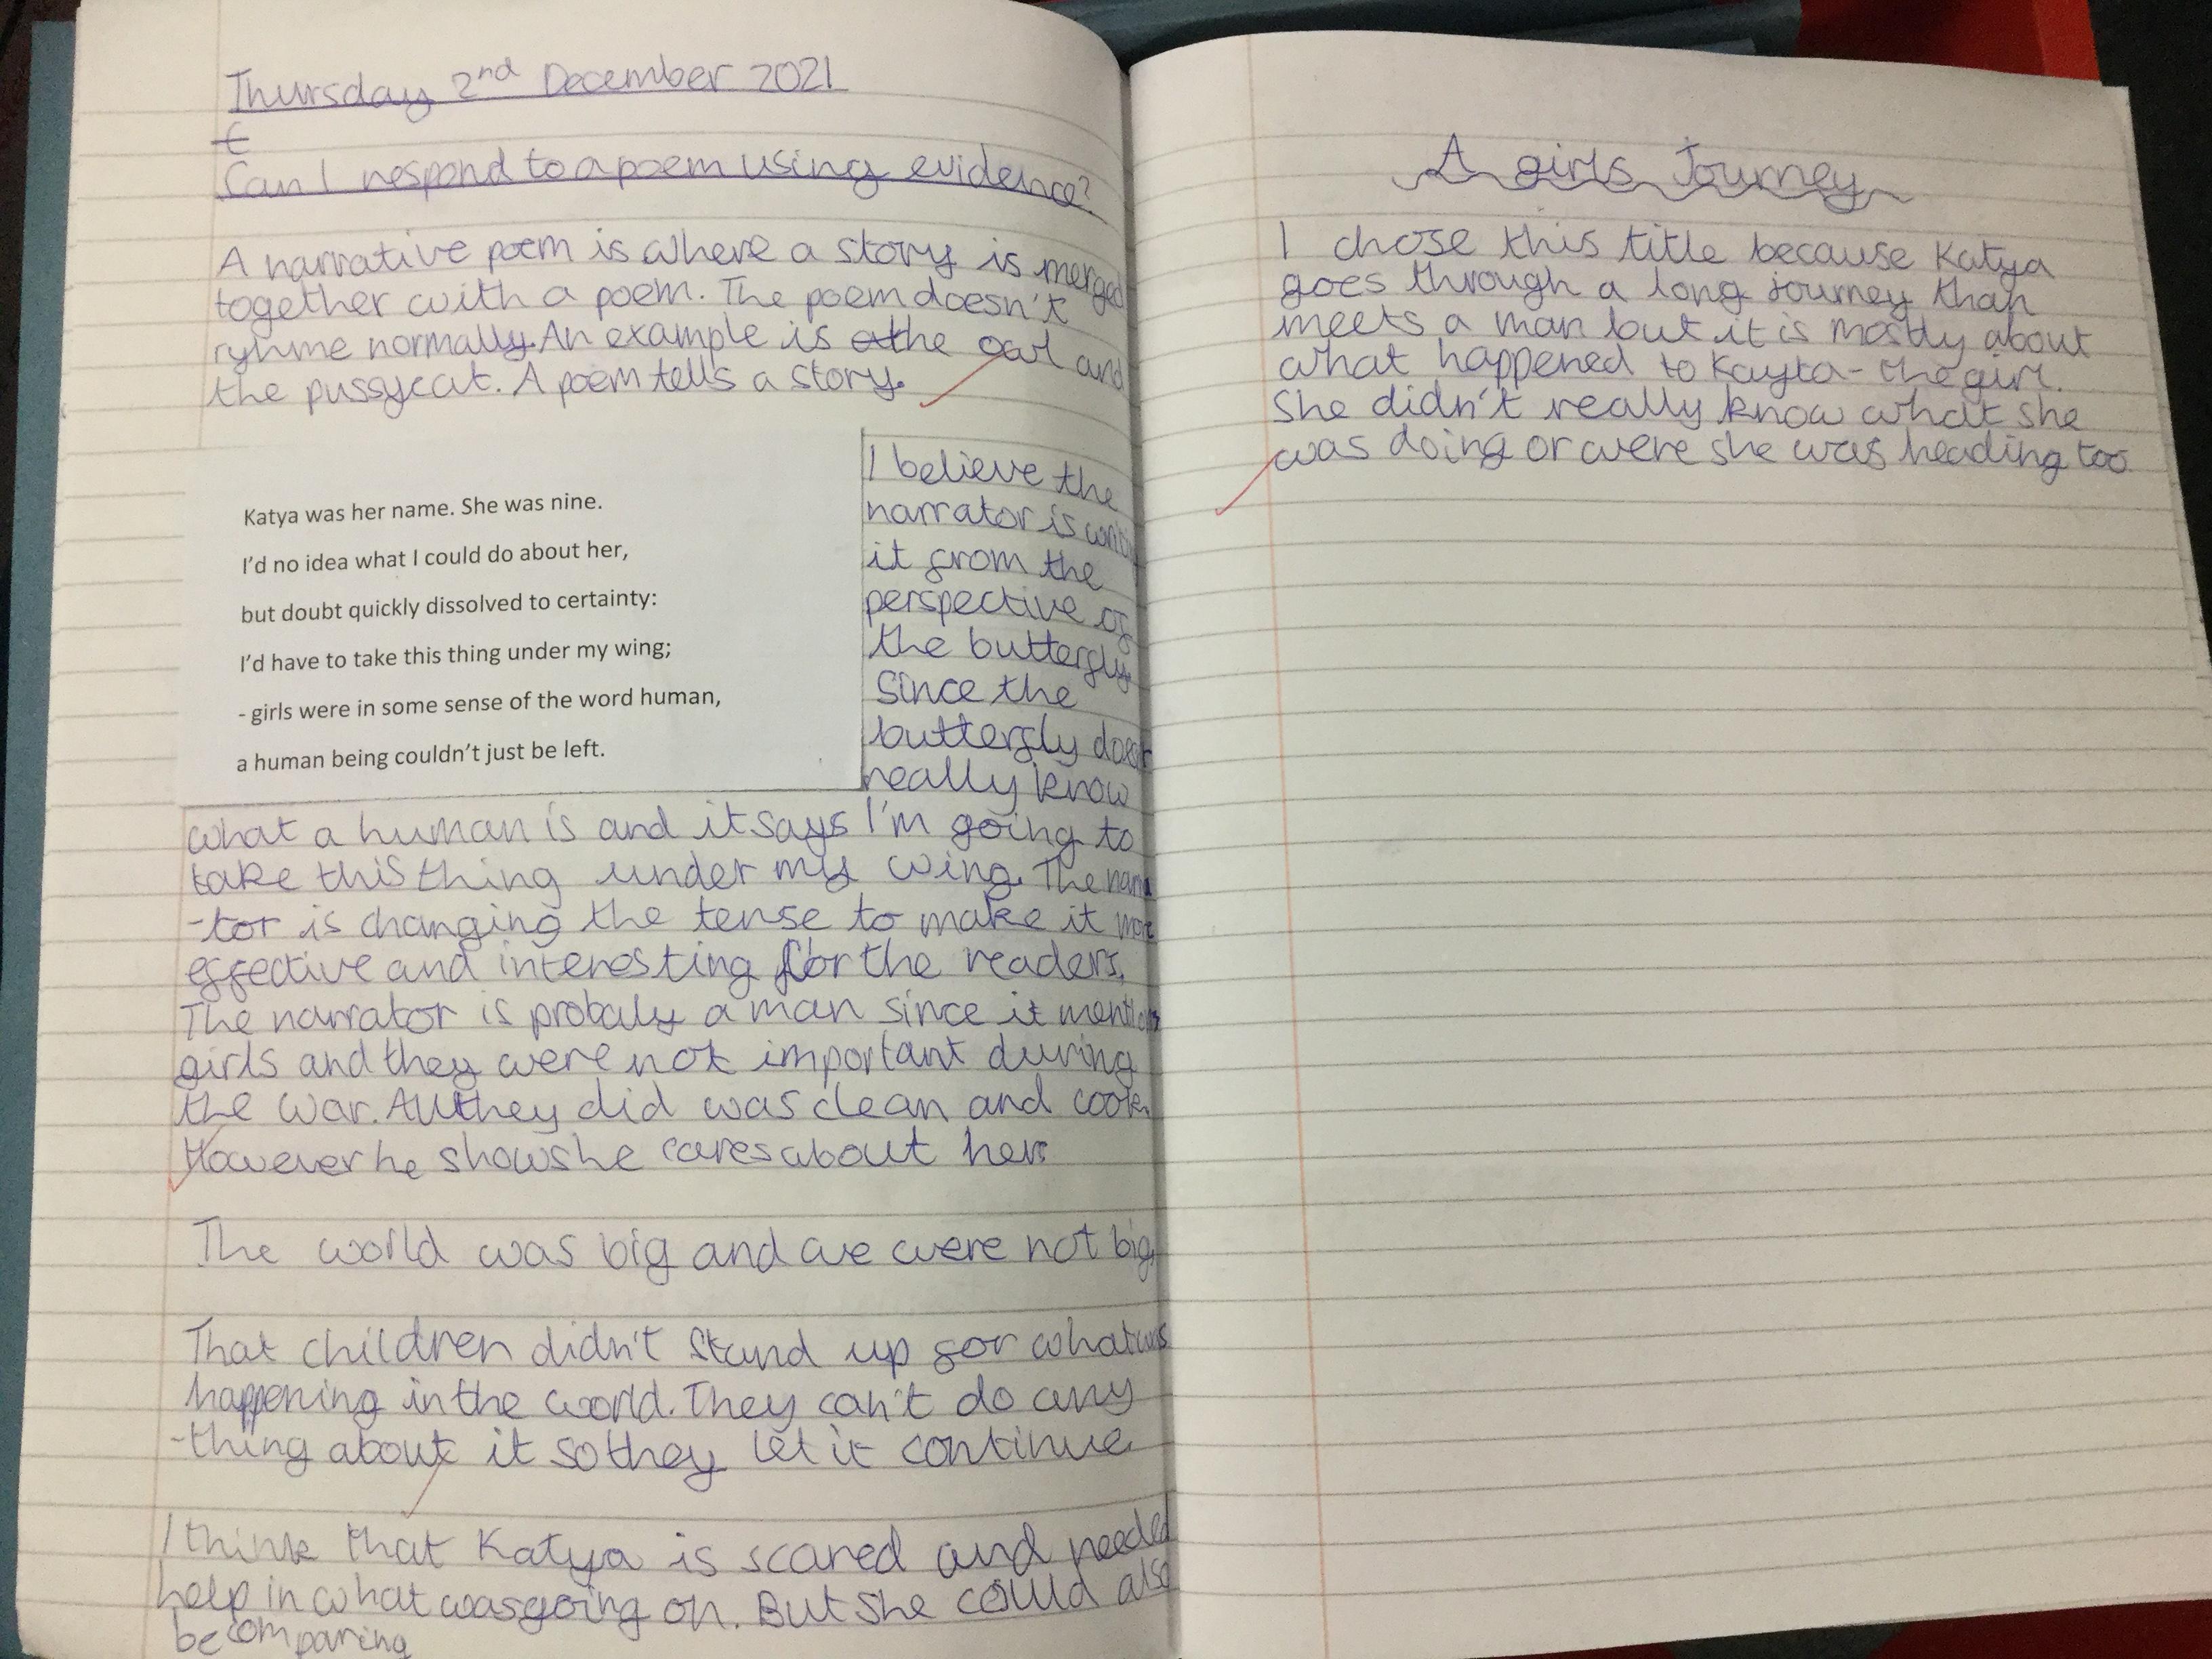 Thursday 2nd December 2021
Can I respond to a poem using evidence?
A narrative poem is where a story is merged
together with a poem. The poem doesn't
ryhme normally. An example is the owl and
the pussycat. A poem tells a story.
Katya was her name. She was nine.
I'd no idea what I could do about her,
but doubt quickly dissolved to certainty:
I'd have to take this thing under my wing;
- girls were in some sense of the word human,
a human being couldn't just be left.
I believe the
narrator is
it from the
perspective of
the butterfly
Since the
butterfly
really know
what a human is and it says I'm going to
take this thing under my wing. The narra
-tor is changing the tense to make it more
effective and interesting for the readers.
The narrator is probaly a man since it mentions
girls and they were not important during
the war. All they did was clean and cook.
However he shows he cares about her.
The world was big and we were not big.
That children didn't stand up for what was
happening in the world. They can't do any
-thing about it so they let it continue
I think that Katya is scared and needed
help in what was going on. But she could also
be comparing
A girls Journey
I chose this title because Katya
goes through a long journey than
meets a man but it is mostly about
what happened to Kayta - the girl.
She didn't really know what she
was doing or were she was heading too